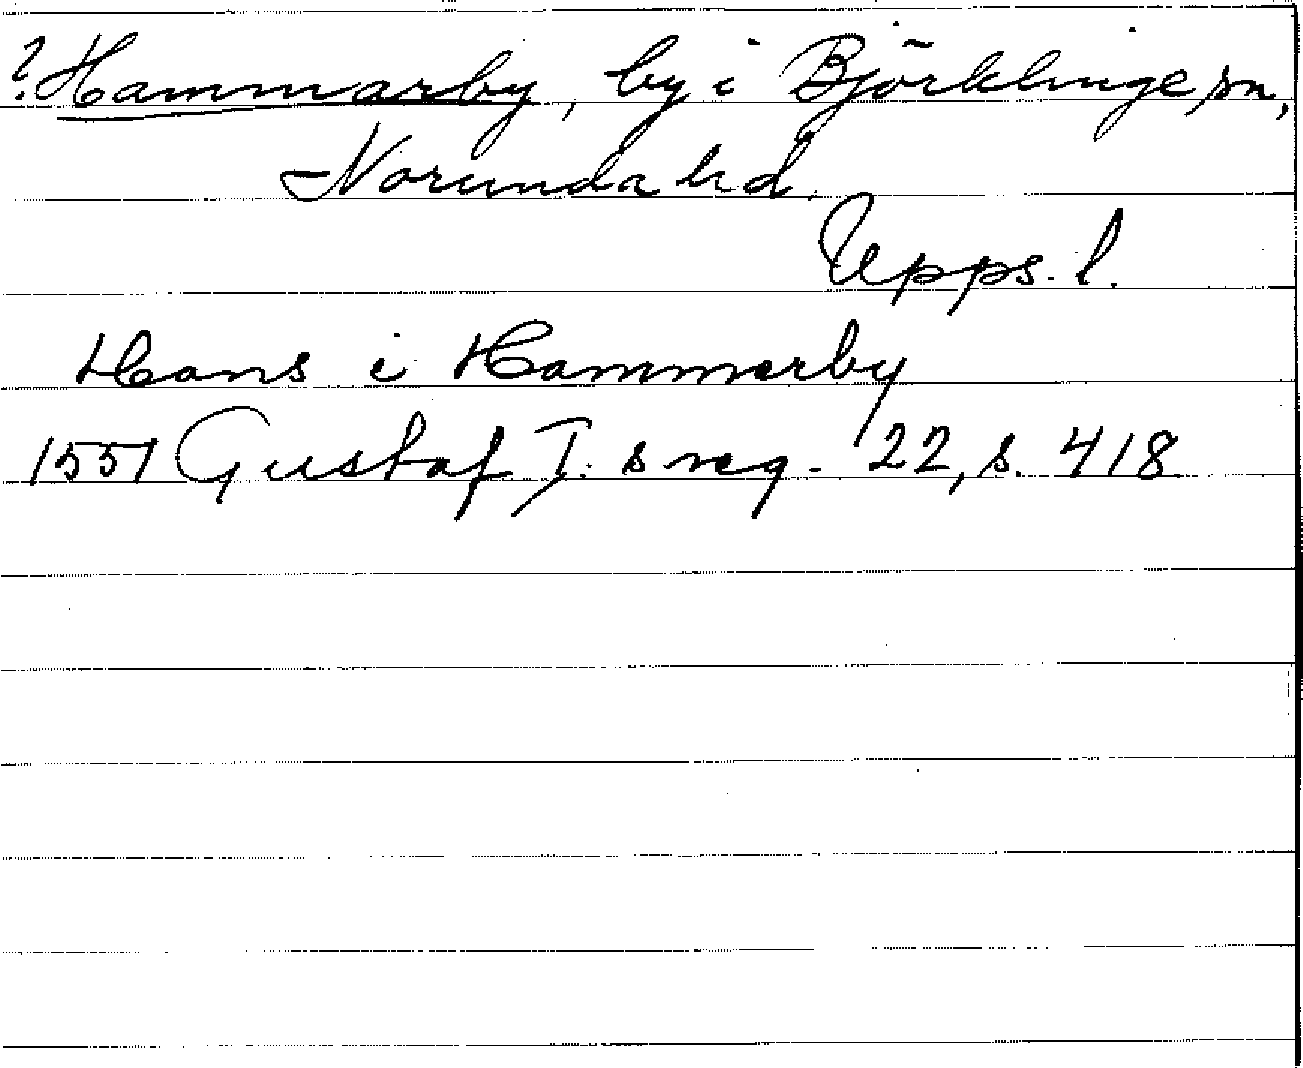 ? Hammarby, by i Björklinge sn,
Norunda hd.
Upps. l.
Hans i Hammerby
1551 Gustaf I:s reg. 22, s. 418